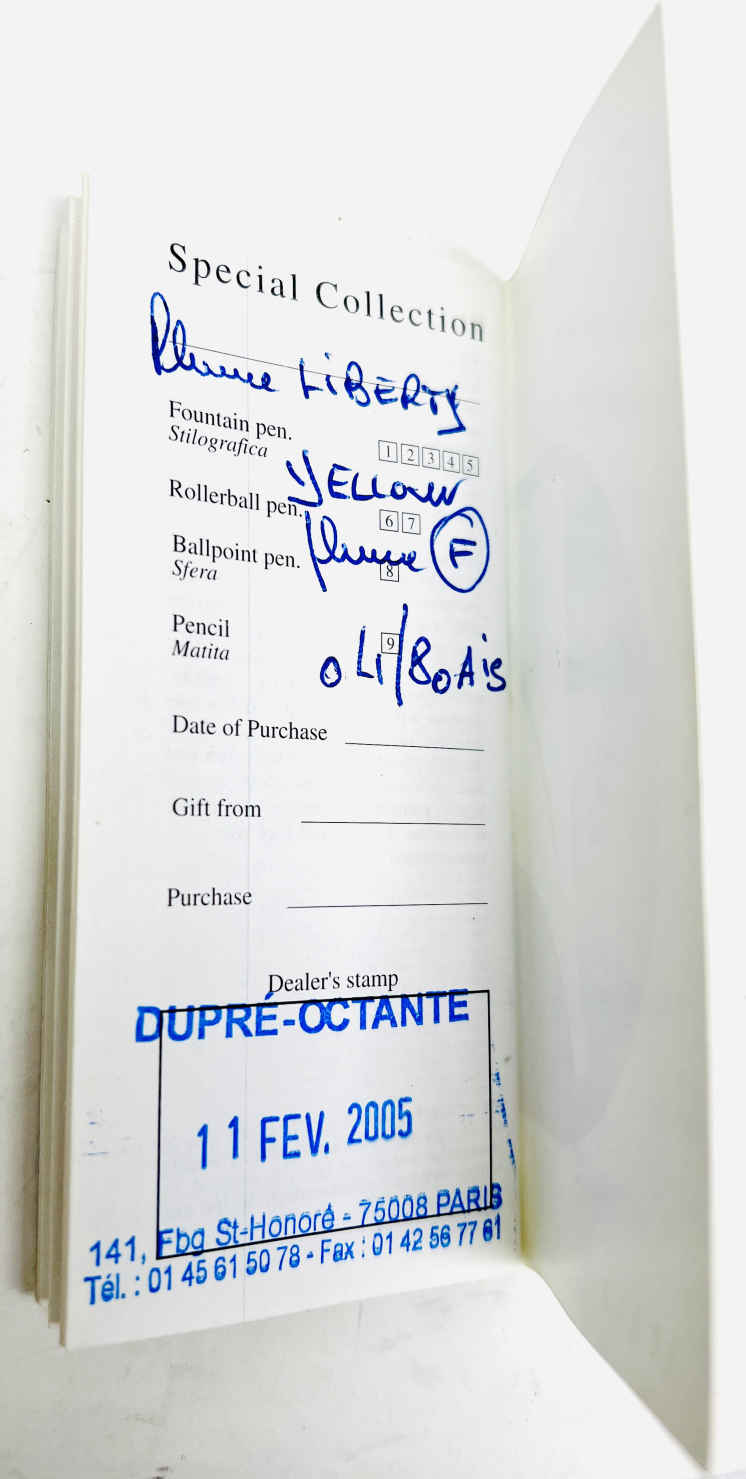 Special Collection
Plume LiBERTY
Fountain pen.
Stilografica
1 2 3 4 5
YELLOW
Rollerball pen.
6 7
Plume F
Ballpoint pen.
Sfera
8
Pencil
Matita
9
Date of Purchase
Gift from
Purchase
Dealer's stamp
DUPRÉ-OCTANTE
11 FEV. 2005
141, Fbg St-Honoré - 75008 PARIS
Tél. : 01 45 61 50 78 - Fax : 01 42 56 77 61